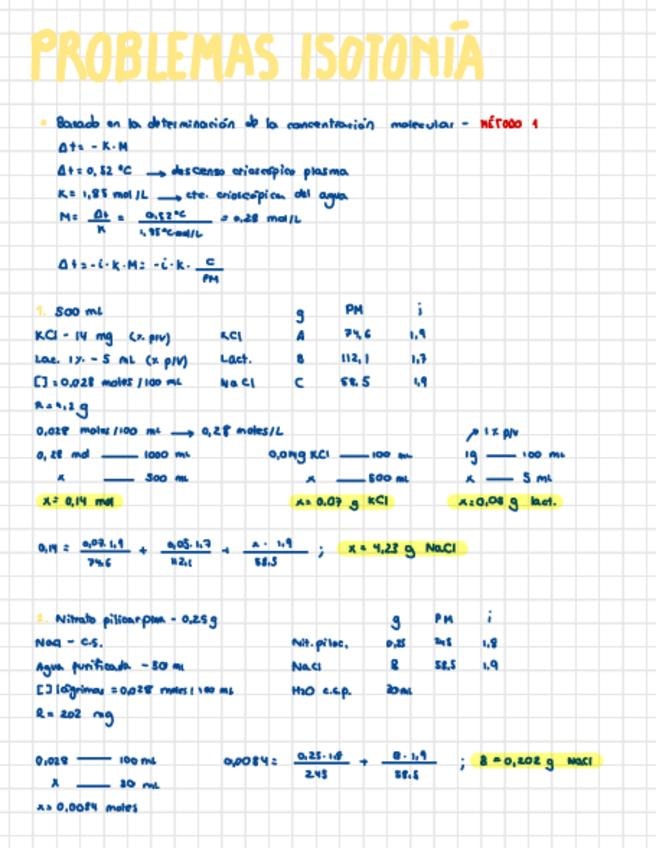 PROBLEMAS ISOTONÍA
• Basado en la determinación de la concentración molecular - MÉTODO 1
Δt = - K·M
Δt = 0,52 °C → descenso crioscópico plasma
K = 1,85 mol/L → cte. crioscópica del agua
M = Δt / K = 0,52°C / 1,85°C·mol/L = 0,28 mol/L
Δt = -i·K·M = -i·K· C / PM
1. 500 mL g PM i
KCl - 14 mg (% p/v) KCl A 74,6 1,9
Lac. 1% - 5 mL (% p/v) Lact. B 112,1 1,7
[] = 0,028 moles/100 mL NaCl C 58,5 1,9
R = 4,2 g
0,028 moles/100 mL → 0,28 moles/L ↗ 1% p/v
0,28 mol — 1000 mL KCl — 100 mL 1g — 100 mL
x — 500 mL x — 500 mL x — 5 mL
x = 0,14 mol x = 0,07 g KCl x = g lact.
0,14 = 0,07·1,9 / 74,6 + 0,05·1,7 / 112,1 + x·1,9 / 58,5 ; x = 4,23 g NaCl
2. Nitrato - 0,25 g g PM i
- c.s. Nit. piloc. 0,25 1,8
Agua purificada - 30 mL NaCl B 58,5 1,9
[] lágrimas = 0,028 moles/100 mL H2O c.s.p. 30 mL
R = 202 mg
0,028 — 100 mL 0,0084 = 0,25·1,8 / 245 + B·1,9 / 58,5 ; B = 0,202 g NaCl
x — 30 mL
x = 0,0084 moles